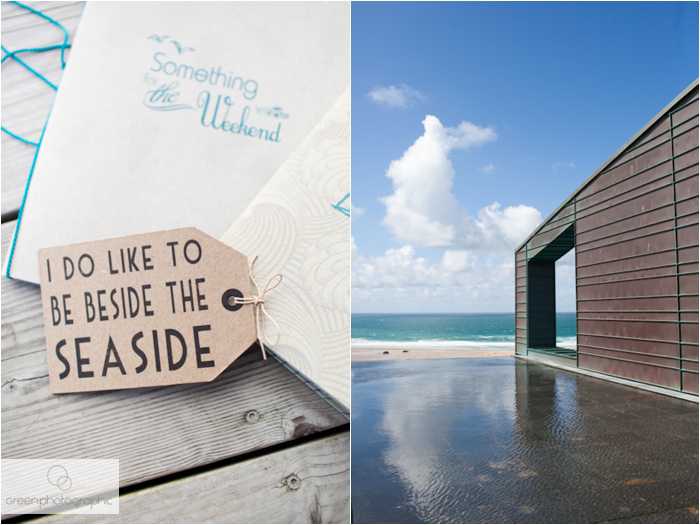 Something
for
the Weekend
I DO LIKE TO
BE BESIDE THE
SEASIDE
greenphotographic